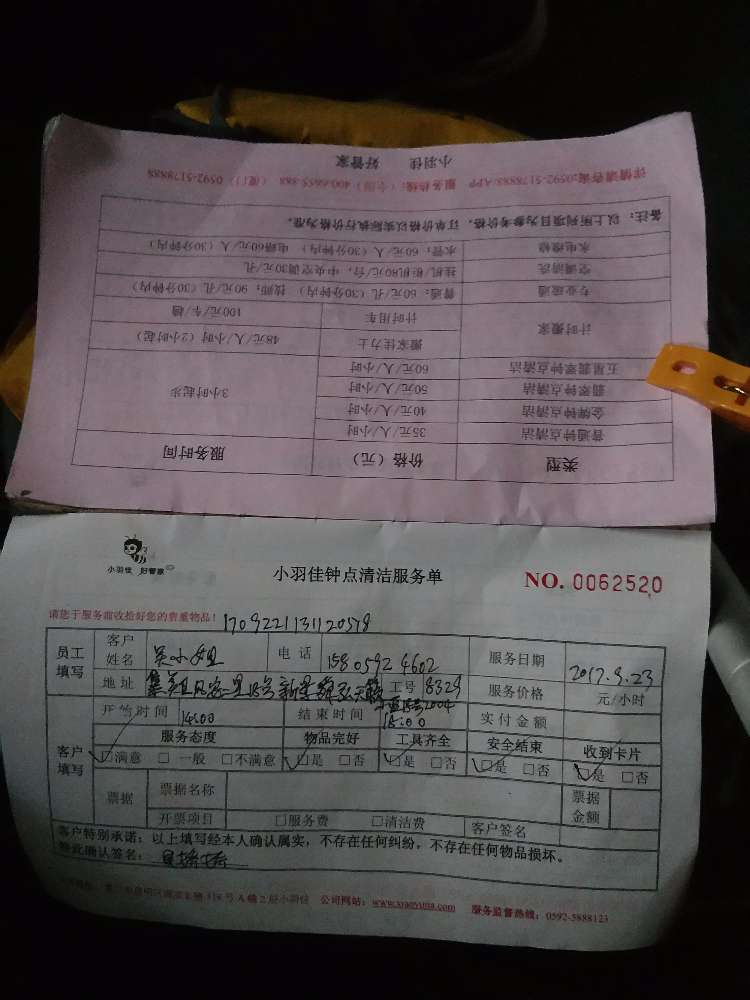 小羽佳 好管家
详情请咨询:0592-5178888/APP 服务热线:(全国) 400-6655-888 (厦门) 0592-5178888
备注:以上所列项目为参考价格,订单价格以实际执行价格为准。
水电维修 水管:60元/人(30分钟内) 电路60元/人(30分钟内)
空调清洗 挂机/柜机80元/台,中央空调30元/孔
专业疏通 普通:60元/孔(30分钟内) 技师:90元/孔(30分钟内)
计时搬家 计时用车 100元/车/趟
搬家佳力士 48元/人/小时(2小时起)
五星翡翠钟点清洁 60元/人/小时
翡翠钟点清洁 50元/人/小时 3小时起步
金牌钟点清洁 40元/人/小时
普通钟点清洁 35元/人/小时
类型 价格(元) 服务时间
小羽佳 好管家
小羽佳钟点清洁服务单
NO. 0062520
请您于服务前收拾好您的贵重物品!
1709221131120578
员工填写 客户姓名 吴小姐 电话 15805924602 服务日期 2017.9.23
地址 工号 8329 服务价格 元/小时
开始时间 14:00 结束时间 18:00 实付金额
客户填写 服务态度 物品完好 工具齐全 安全结束 收到卡片
☑满意 □一般 □不满意 ☑是 □否 ☑是 □否 ☑是 □否 ☑是 □否
票据 票据名称 票据金额
开票项目 □服务费 □清洁费 客户签名
客户特别承诺:以上填写经本人确认属实,不存在任何纠纷,不存在任何物品损坏。
特此确认签名:
公司网站:www.xiaoyujia.com 服务监督热线:0592-5888123